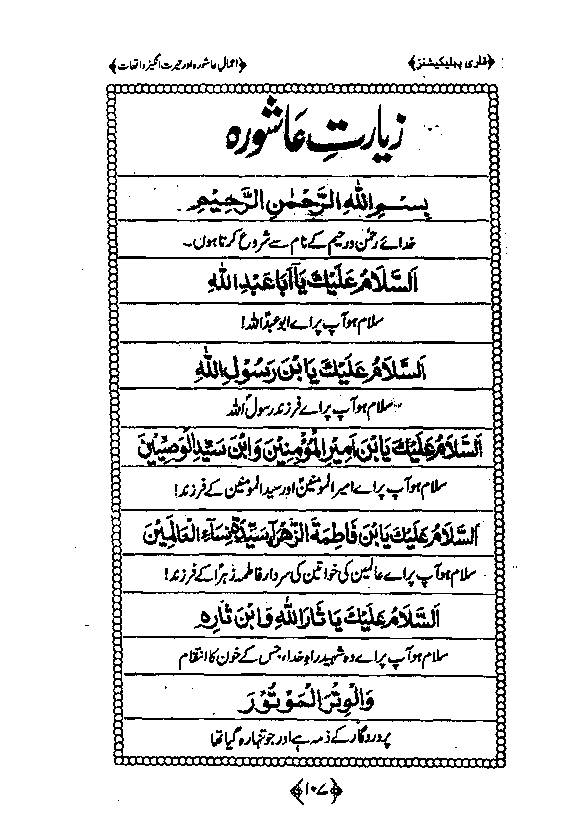 ﴿قاری پبلیکیشنز﴾ ﴿اعمالِ عاشورہ اور حیرت انگیز واقعات﴾
زیارتِ عاشورہ
بِسْمِ اللهِ الرَّحْمٰنِ الرَّحِيْمِ
خدائے رحمٰن ورحیم کے نام سے شروع کرتا ہوں۔
اَلسَّلَامُ عَلَيْكَ يَا اَبَا عَبْدِ اللهِ
سلام ہو آپ پر اے ابو عبدؑ اللہ!
اَلسَّلَامُ عَلَيْكَ يَا بْنَ رَسُوْلِ اللهِ
سلام ہو آپ پر اے فرزند رسولؐ اللہ
اَلسَّلَامُ عَلَيْكَ يَا بْنَ اَمِيْرِ الْمُؤْمِنِيْنَ وَابْنَ سَيِّدِ الْوَصِيِّيْنَ
سلام ہو آپ پر اے امیر المومنینؑ اور سید المومنین کے فرزند!
اَلسَّلَامُ عَلَيْكَ يَا بْنَ فَاطِمَةَ الزَّهْرَآءِ سَيِّدَةِ نِسَآءِ الْعَالَمِيْنَ
سلام ہو آپ پر اے عالمین کی خواتین کی سردار فاطمہ زہراؑ کے فرزند!
اَلسَّلَامُ عَلَيْكَ يَا ثَارَ اللهِ وَابْنَ ثَارِهِ
سلام ہو آپ پر اے وہ شہید راہِ خدا، جس کے خون کا انتقام
وَالْوِتْرَ الْمَوْتُوْرَ
پروردگار کے ذمہ ہے اور جو تنہا رہ گیا تھا
﴿۱۰۷﴾